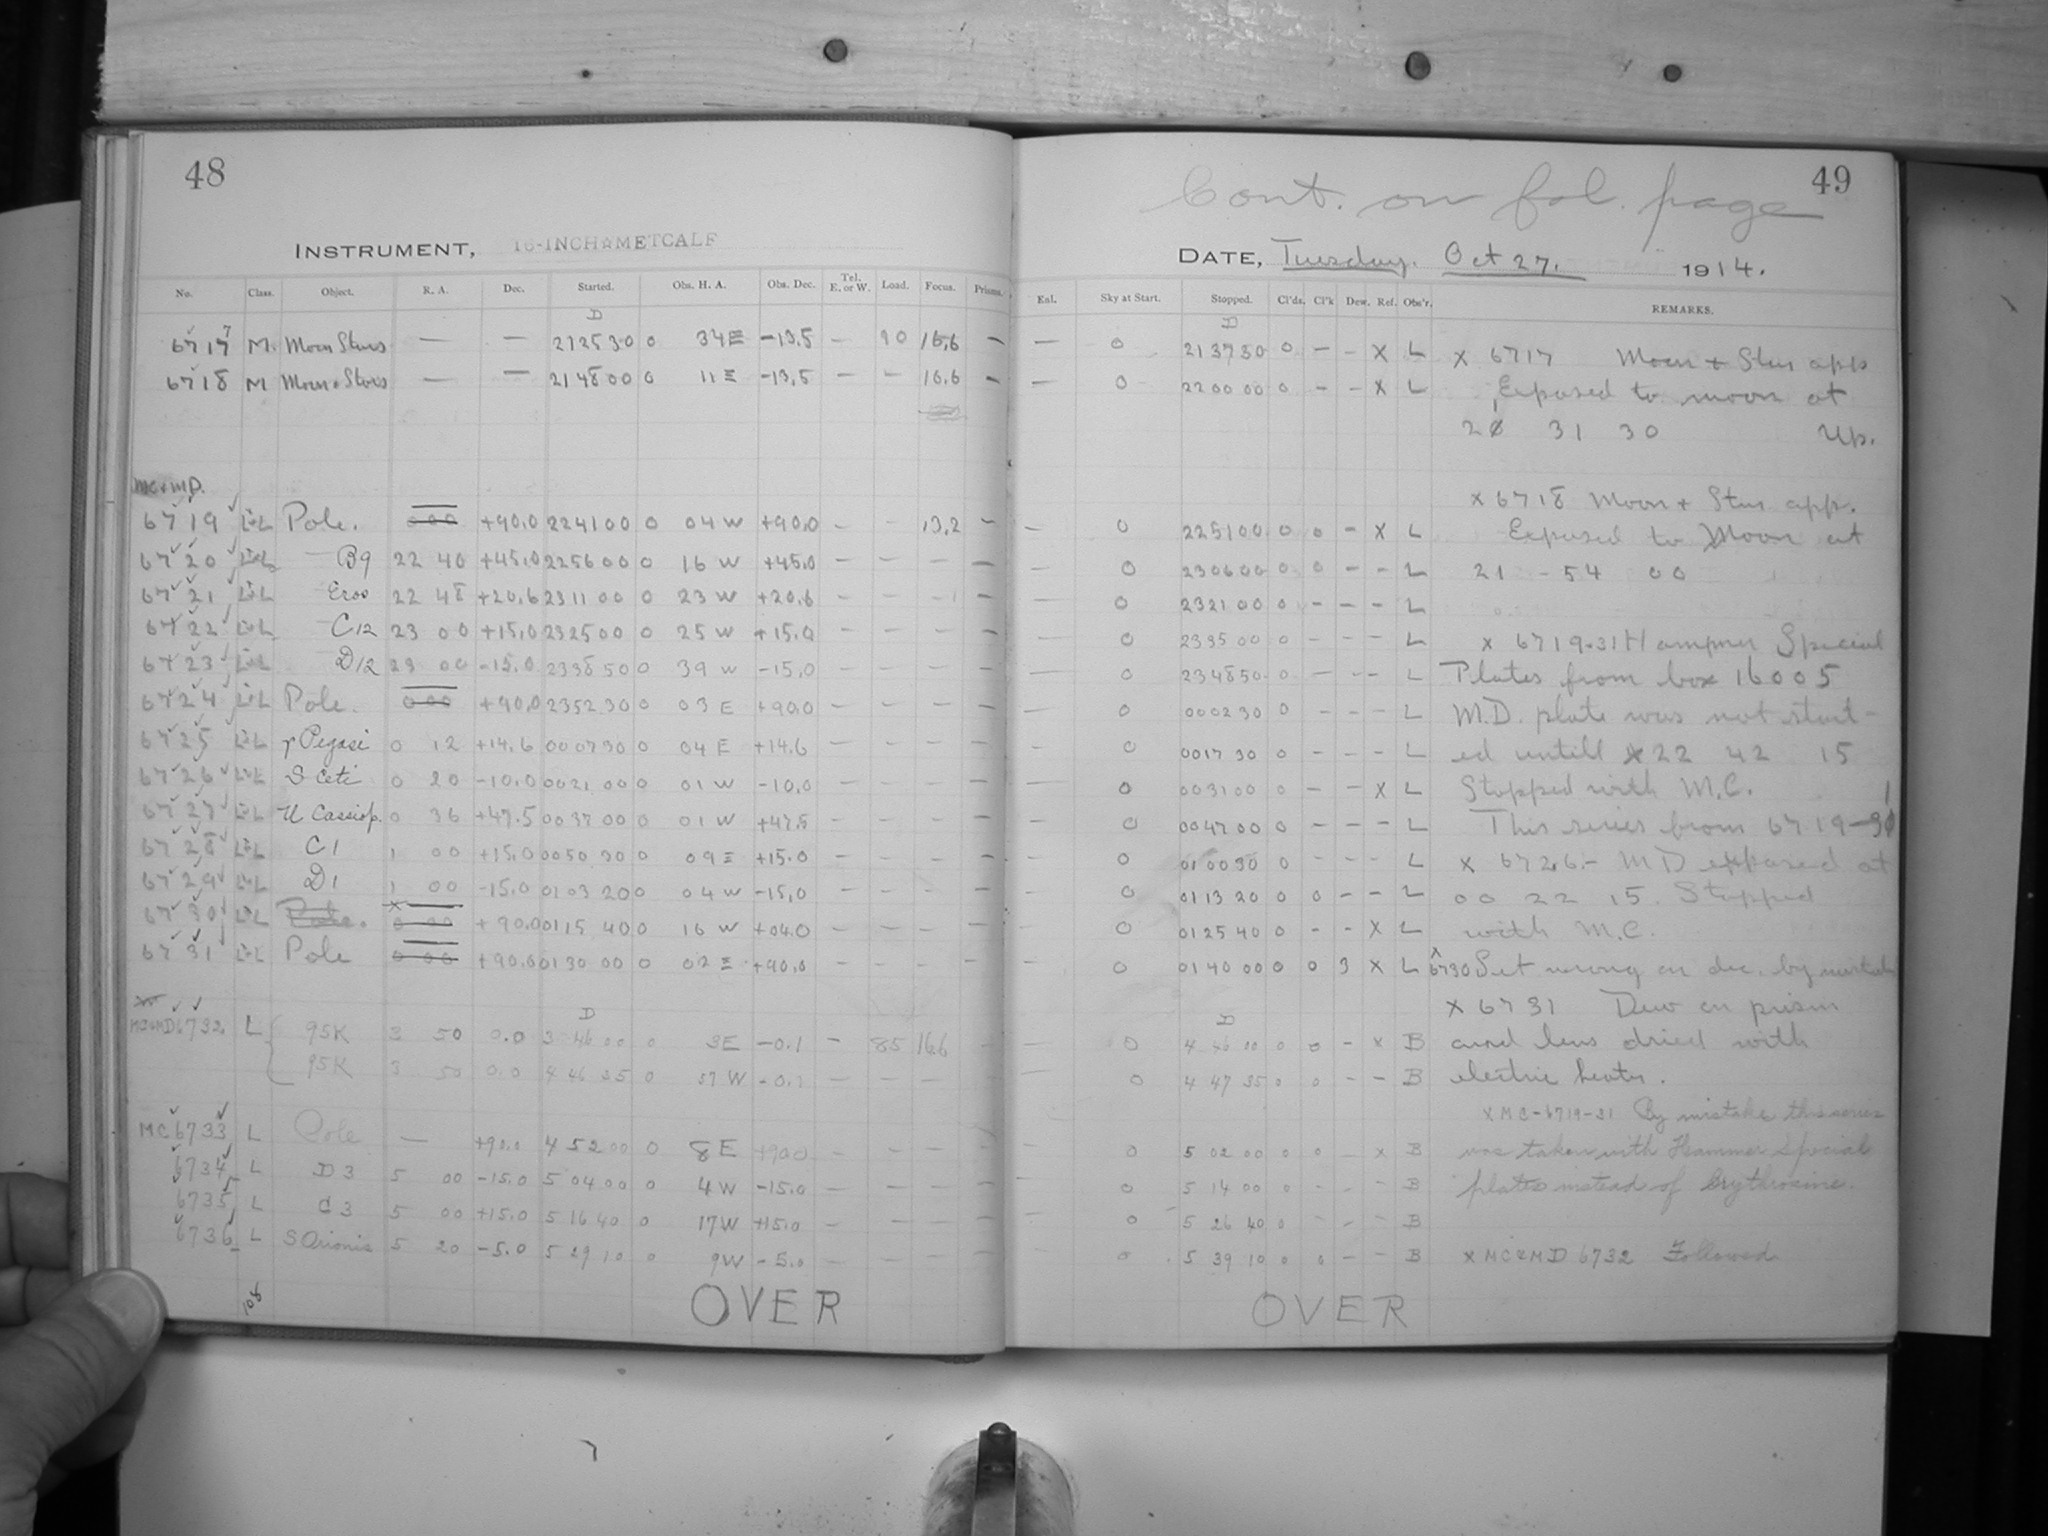 48
INSTRUMENT, 16-INCH☆METCALF
No. Class. Object. R. A. Dec. Started. Obs. H. A. Obs. Dec. Tel. E. or W. Load. Focus. Prisms.
D
6717 M. Moon Stars — — 21 25 30 0 34 E -13.5 — 90 16.6 —
6718 M Moon + Stars — — 21 48 00 0 11 E -13.5 — — 16.6 —
MC+MD.
6719 L+L Pole. 000 +90.0 22 41 00 0 04 W +90.0 — — 13.2 —
6720 L+L B9 22 40 +45.0 22 56 00 0 16 W +45.0 — — — —
6721 L+L Eros 22 48 +20.6 23 11 00 0 23 W +20.6 — — — —
6722 L+L C12 23 00 +15.0 23 25 00 0 25 W +15.0 — — — —
6723 L+L D12 23 00 -15.0 23 38 50 0 39 W -15.0 — — — —
6724 L+L Pole. 000 +90.0 23 52 30 0 03 E +90.0 — — — —
6725 L+L γ Pegasi 0 12 +14.6 00 07 30 0 04 E +14.6 — — — —
6726 L+L S Ceti 0 20 -10.0 00 21 00 0 01 W -10.0 — — — —
6727 L+L U Cassiop. 0 36 +47.5 00 37 00 0 01 W +47.5 — — — —
6728 L+L C1 1 00 +15.0 00 50 30 0 09 E +15.0 — — — —
6729 L+L D1 1 00 -15.0 01 03 20 0 04 W -15.0 — — — —
6730 L+L Pole. x 0 00 +90.0 01 15 40 0 16 W +04.0 — — — —
6731 L+L Pole 0 00 +90.0 01 30 00 0 02 E +90.0 — — — —
D
MC+MD 6732 L 95K 3 50 0.0 3 46 00 0 3 E -0.1 — 85 16.6 —
95K 3 50 0.0 4 46 35 0 57 W -0.1 — — — —
MC 6733 L Pole — +90.0 4 52 00 0 8 E +90.0 — — — —
6734 L D3 5 00 -15.0 5 04 00 0 4 W -15.0 — — — —
6735 L C3 5 00 +15.0 5 16 40 0 17 W +15.0 — — — —
6736 L S Orionis 5 20 -5.0 5 29 10 0 9 W -5.0 — — — —
108
OVER
Cont. on fol. page
49
DATE, Tuesday. Oct 27. 1914.
Enl. Sky at Start. Stopped. Cl'ds. Cl'k Dew. Ref. Obs'r. REMARKS.
D
— 0 21 37 30 0 — — x L x 6717 Moon + Stars app
— 0 22 00 00 0 — — x L Exposed to moon at
21 31 30 Up.
x 6718 Moon + Stars app.
— 0 22 51 00 0 0 — x L Exposed to Moon at
— 0 23 06 00 0 0 — — L 21 - 54 00
— 0 23 21 00 0 — — — L
— 0 23 35 00 0 — — — L x 6719-31 Hammer Special
— 0 23 48 50 0 — — — L Plates from box 16005
— 0 00 02 30 0 — — — L M.D. plate was not start-
— 0 00 17 30 0 — — — L ed untill x 22 42 15
— 0 00 31 00 0 — — x L Stopped with M.C.
— 0 00 47 00 0 — — — L This series from 6719-31
— 0 01 00 30 0 — — — L x 6726.- MD exposed at
— 0 01 13 20 0 0 — — L 00 22 15. Stopped
— 0 01 25 40 0 — — x L with M.C.
— 0 01 40 00 0 0 3 x L x 6730 Set wrong on dec. by mistake
x 6731 Dew on prism
D
— 0 4 46 10 0 0 — x B and lens dried with
— 0 4 47 35 0 0 — — B electric heater.
x MC-6719-31 By mistake this series
— 0 5 02 00 0 0 — x B was taken with Hammer Special
— 0 5 14 00 0 — — — B plates instead of Erythrosine.
— 0 5 26 40 0 — — — B
0 5 39 10 0 0 — — B x MC&MD 6732 Followed
OVER